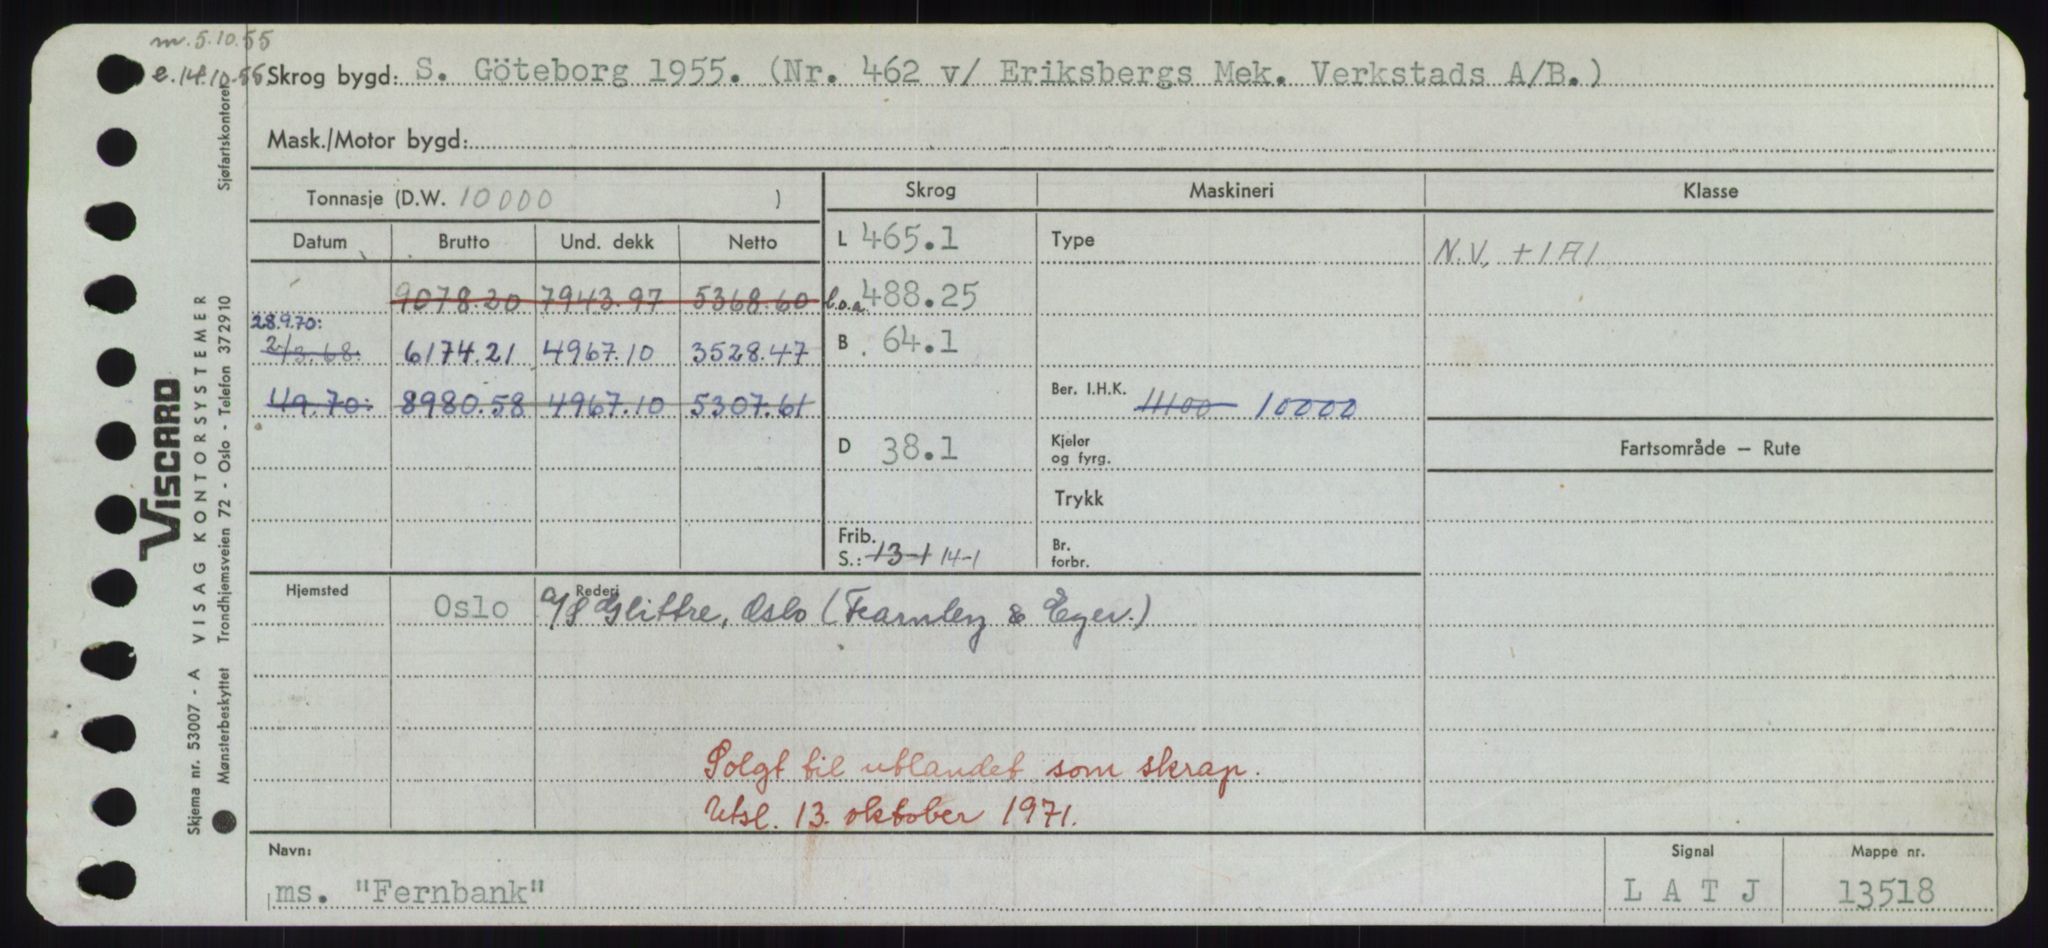 m. 5.10.55
e. 14.10.55
Skrog bygd: S. Göteborg 1955. (Nr. 462 v/ Eriksbergs Mek. Verkstads A/B.)
Mask./Motor bygd:
Tonnasje (D.W. 10000 )
Skrog Maskineri Klasse
Datum Brutto Und. dekk Netto
L 465.1 Type N.V. +1A1
9078.20 7943.97 5368.60 l.o.a. 488.25
28.9.70:
2/3.68. 6174.21 4967.10 3528.47 B. 64.1
4.9.70: 8980.58 4967.10 5307.61 Ber. I.H.K. 11100 10000
D 38.1 Kjeler
og fyrg.
Fartsområde – Rute
Trykk
Frib.
S.: 13-1 14-1
Br.
forbr.
Hjemsted Rederi
Oslo A/S Glittre, Oslo (Fearnley & Eger.)
Solgt til utlandet som skrap.
Utsl. 13. oktober 1971.
Navn: Signal Mappe nr.
ms. "Fernbank" L A T J 13518
Sjøfartskontoret
VISCARD
Skjema nr. 53007 - A VISAG KONTORSYSTEMER
Mønsterbeskyttet Trondhjemsveien 72 - Oslo - Telefon 372910